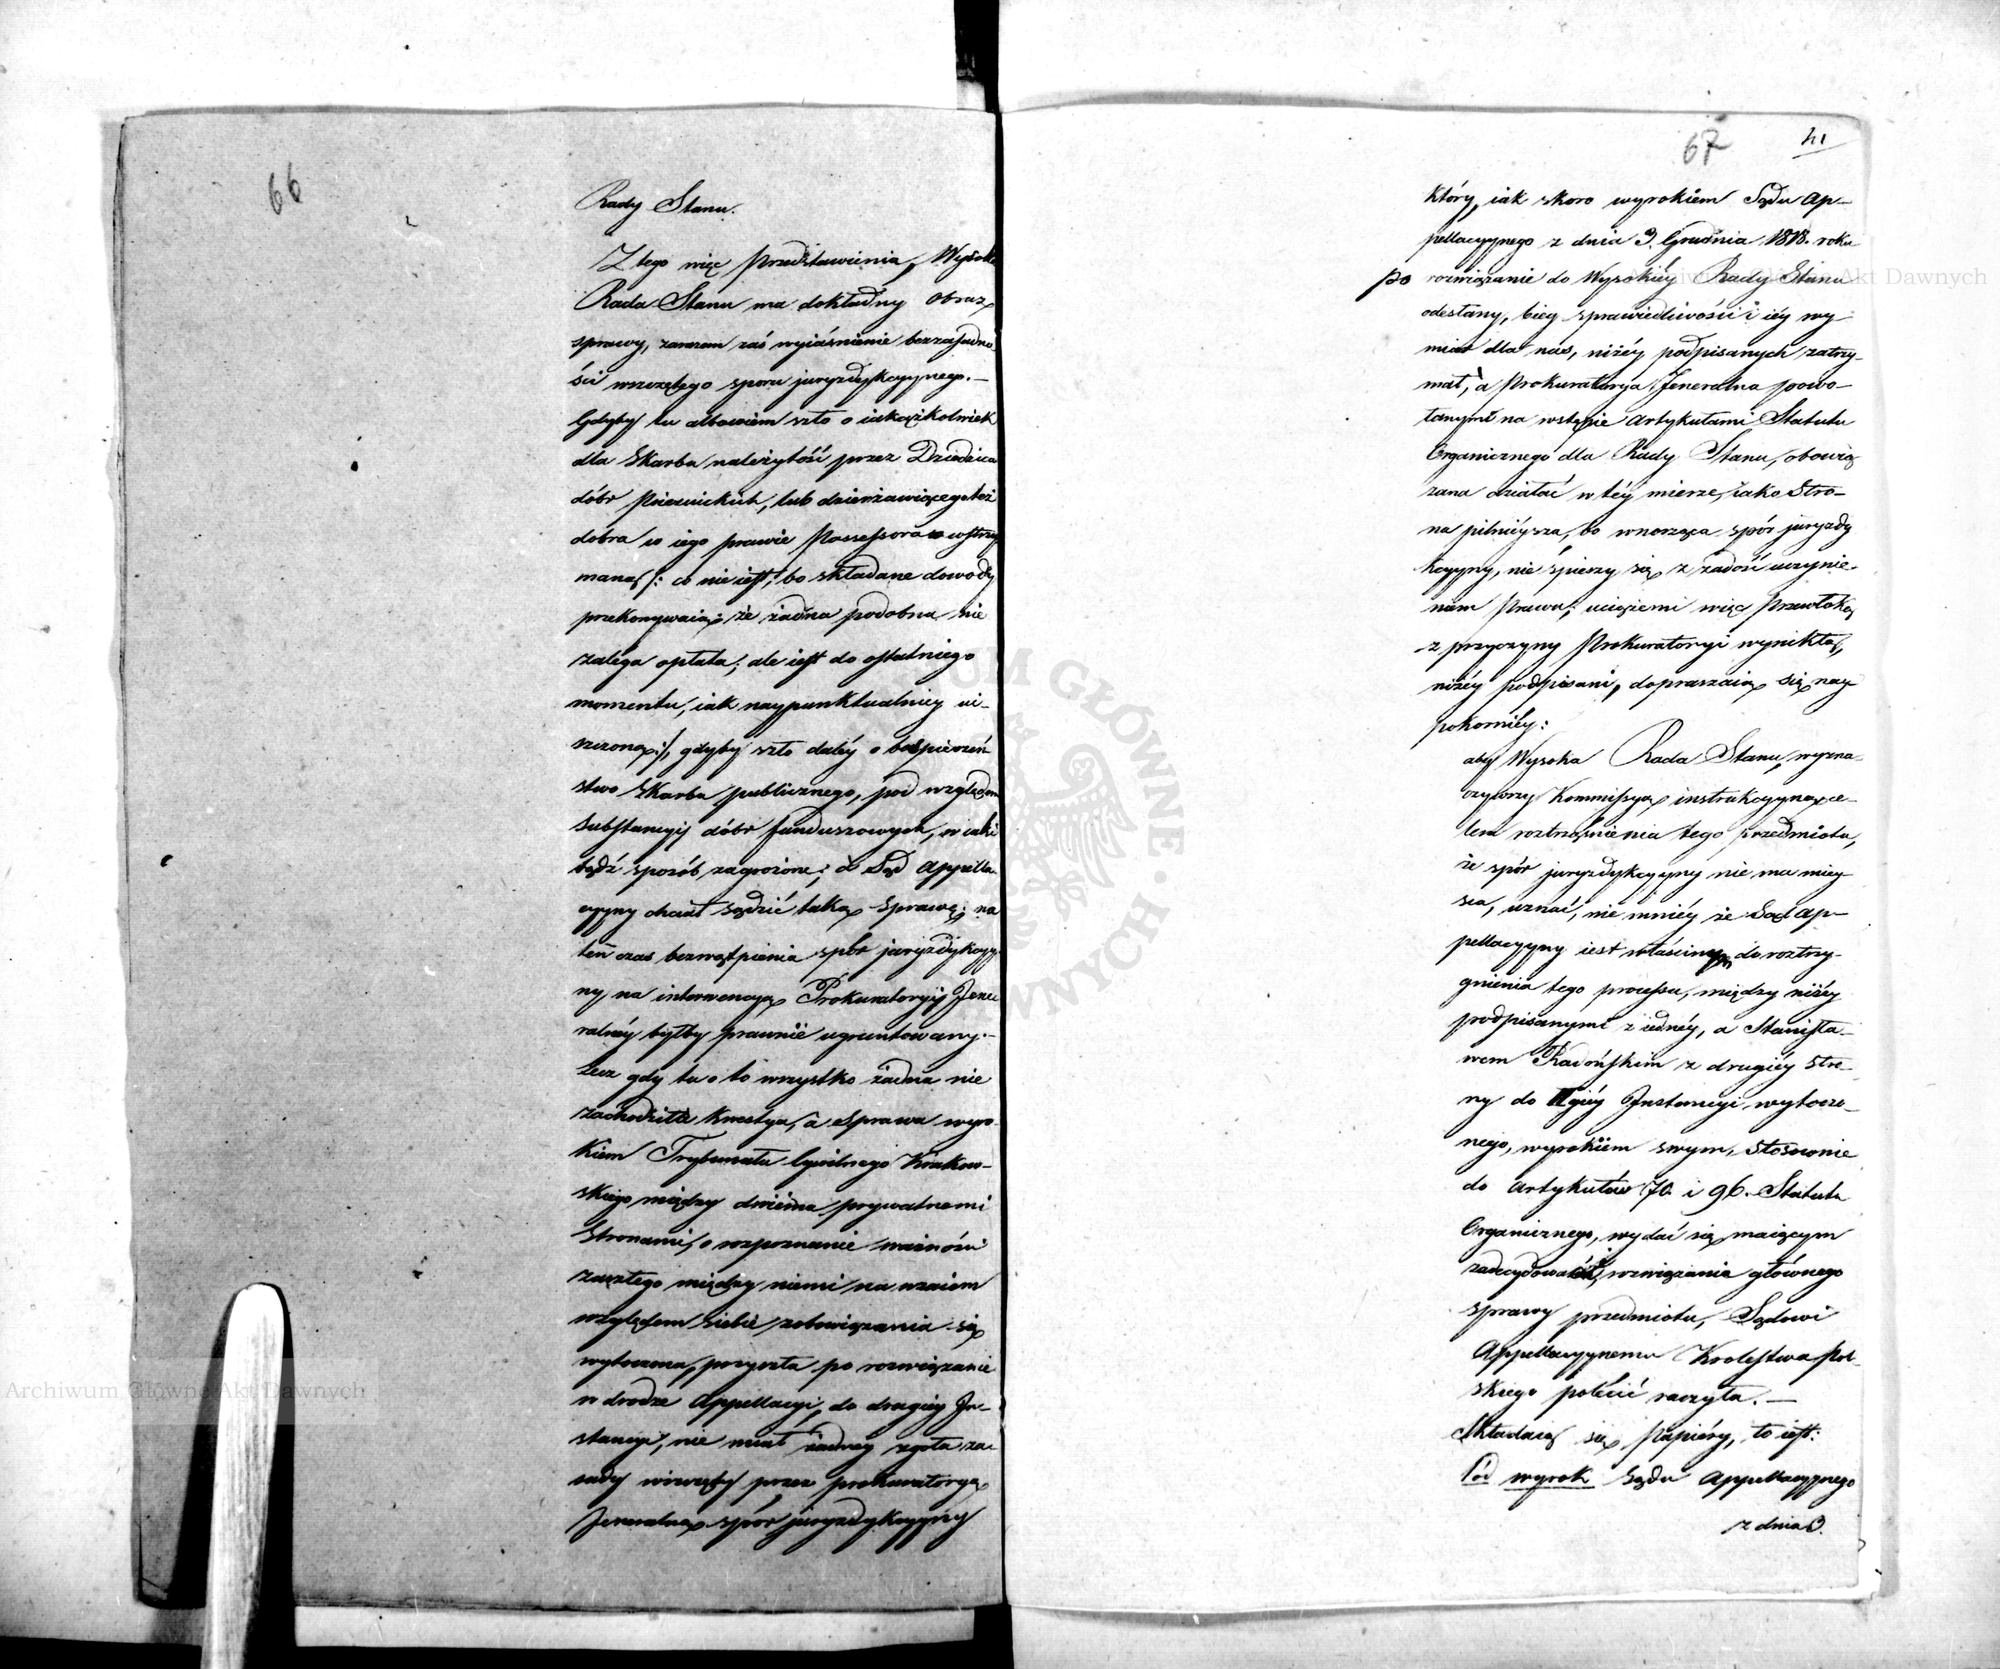 66
Rady Stanu.
Z tego więc przedstawienia, Wysoka
Rada Stanu ma dokładny obraz
sprawy, zarazem zaś wyiaśnienie bezzasadno
ści wszczętego sporu juryzdykcyynego. —
Gdyby tu albowiem szło o iakąszkolwiek
dla Skarbu należytość przez Dziedzica
dóbr, lub dzierżawiącego też
dobra w iego prawie Possessora wstrzy
maną /: co nie iest, bo składane dowody
przekonywaią, że żadna podobna nie
zalega opłata; ale iest do ostatniego
momentu, iak naypunktualniey ui-
szczoną :/, gdyby szło daléy o bespieczeń
stwo Skarbu publicznego, pod względem
Substancyi dóbr funduszowych, w iaki
bądź sposób zagrożone; a Sąd Appella
cyyny chciał sądzić taką sprawę; na
ten czas bezwątpienia spór juryzdykcyy
ny na interwencyą Prokuratoryi Jene
ralnéy byłby prawnie ugruntowany. —
Lecz gdy tu o to wszystko żadna nie
zachodziła kwestya, a Sprawa wyro
kiem Trybunału Cywilnego Krakow-
skiego między dwiema prywatnemi
Stronami, o rozpoznanie ważności
zaszłego między niemi na wzaiem
względem siebie zobowiązania się
wytoczona, przyszła po rozwiązanie
w drodze Appellacyi, do drugiéy In-
stancyi, nie miał żadney zgoła za
sady wszczęty przez prokuratoryą
Jeneralną spór juryzdykcyyny
67
41
który, iak skoro wyrokiem Sądu Ap-
pellacyynego z dnia 9. Grudnia 1818. roku
po rozwiązanie do Wysokiéy Rady Stanu
odesłany, bieg sprawiedliwości i iéy wy
miar dla nas, niżéy podpisanych zatrzy-
mał, a Prokuratorya Jeneralna powo-
łanymi na wstępie Artykułami Statutu
Organicznego dla Rady Stanu, obowią
zana działać w téy mierze, iako Stro-
na pilniéysza, bo wnosząca spór juryzdy
kcyyny, nie śpieszy się z zadość uczynie-
niem Prawu; uciążeni więc Przewłoką
z przyczyny Prokuratoryi wynikłą,
niżéy podpisani, dopraszaią się nay
pokorniéy:
aby Wysoka Rada Stanu, wyzna-
czywszy Kommissyą instrukcyyną ce-
lem roztrząśnienia tego przedmiotu,
że spór juryzdykcyyny nie ma miey
sca, uznać, nie mniéy że Sąd Ap-
pellacyyny iest właściwym do roztrzy-
gnienia tego processu, między niżéy
podpisanymi z iednéy, a Stanisła-
wem Radońskim z drugiéy Stro-
ny do IIgiéy Instancyi wytoczo-
nego, wyrokiem swym, Stosownie
do Artykułów 70. i 96. Statutu
Organicznego, wydać się maiącym
zadecydować, rozwiązania głównego
sprawy przedmiotu, Sądowi
Appellacyynemu Królestwa Pol-
skiego polécić raczyła. —
Składaią się Papiéry, to iest:
wyrok Sądu Appellacyynego
z dnia 9.
Archiwum Główne Akt Dawnych
Archiwum Główne Akt Dawnych